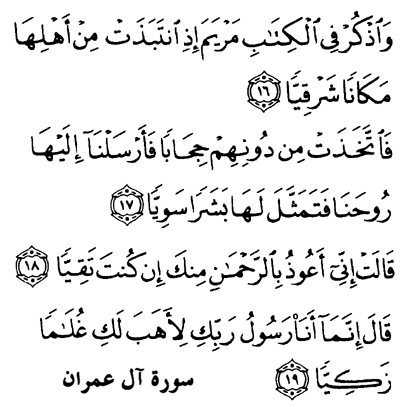 وَٱذْكُرْ فِى ٱلْكِتَٰبِ مَرْيَمَ إِذِ ٱنتَبَذَتْ مِنْ أَهْلِهَا
مَكَانًا شَرْقِيًّا ١٦
فَٱتَّخَذَتْ مِن دُونِهِمْ حِجَابًا فَأَرْسَلْنَآ إِلَيْهَا
رُوحَنَا فَتَمَثَّلَ لَهَا بَشَرًا سَوِيًّا ١٧
قَالَتْ إِنِّىٓ أَعُوذُ بِٱلرَّحْمَٰنِ مِنكَ إِن كُنتَ تَقِيًّا ١٨
قَالَ إِنَّمَآ أَنَا۠ رَسُولُ رَبِّكِ لِأَهَبَ لَكِ غُلَٰمًا
زَكِيًّا ١٩ سورة آل عمران